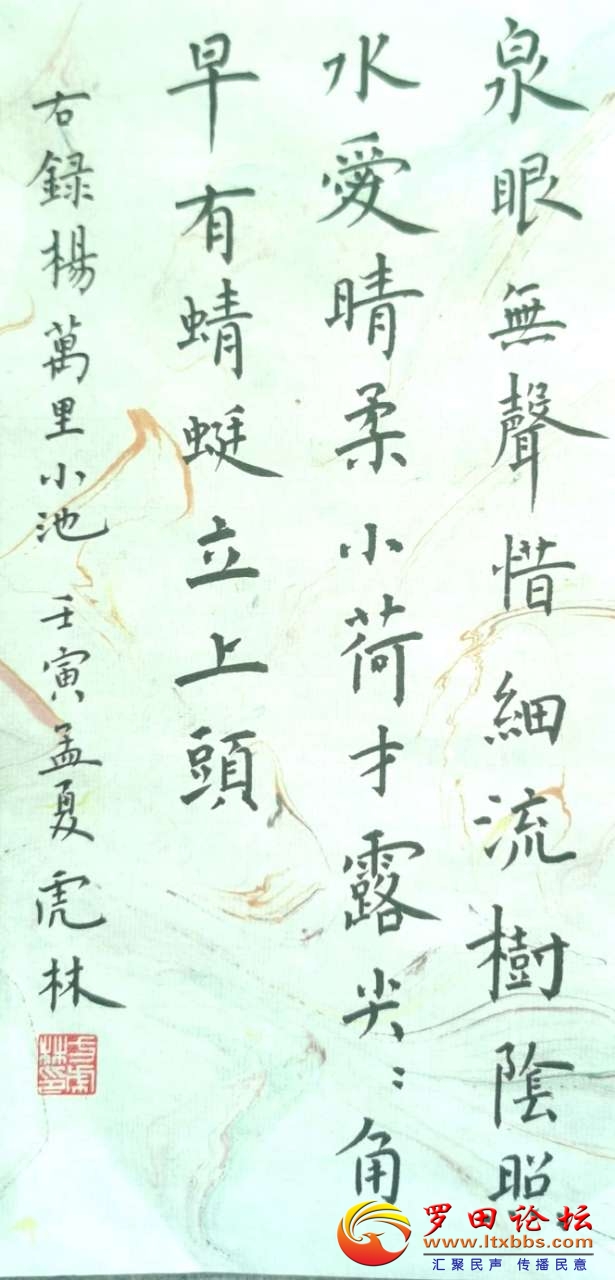 泉眼無聲惜細流樹陰照
水愛晴柔小荷才露尖:角
早有蜻蜓立上頭
右録楊萬里小池 壬寅孟夏 虎林
罗田论坛
www.ltxbbs.com
汇聚民声 传播民意